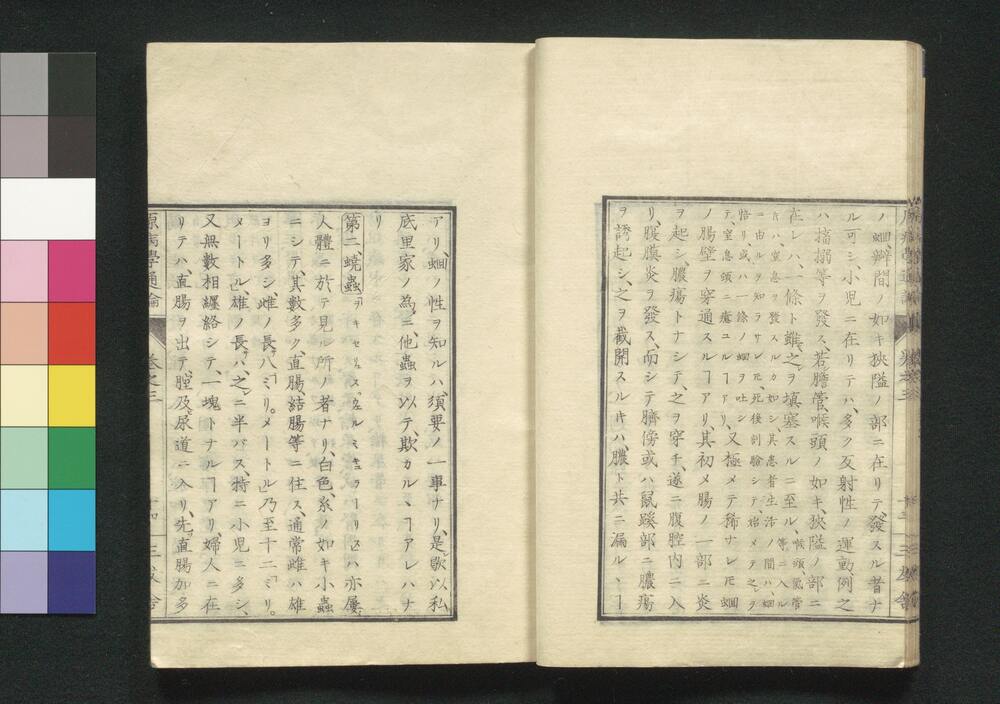 ノ蛔、辨間ノ如キ狹隘ノ部ニ在リテ、發スル者ナ
ル可シ、小児ニ在リテハ、多ク反射性ノ運動例之
ハ、搐搦等ヲ發ス、若シ膽管、喉頭ノ如キ、狹隘ノ部ニ
在レハ、一條ト雖、之ヲ塡塞スルニ至ル、喉頭、氣管
等ニ入ル
キハ、窒息ヲ發スルカ如シ、其患者生活ノ間ハ、蛔
ニ由ルヲ知ラサレ𪜈、死後剖驗シテ、始メテ之ヲ
悟リ、或ハ一條ノ蛔ヲ吐シ
テ、窒息頓ニ癒ユルヿアリ、又極メテ稀ナレ𪜈蛔
ノ腸壁ヲ穿通スルヿアリ、其初メ腸ノ一部ニ炎
ヲ起シ、膿瘍トナシテ、之ヲ穿チ、遂ニ腹腔内ニ入
リ、腹膜炎ヲ發ス、而シテ臍傍或ハ鼠蹊部ニ膿瘍
ヲ誘起シ、之ヲ截開スルキハ、膿ト共ニ漏ルヽヿ
アリ、蛔ノ性ヲ知ルハ、須要ノ一事ナリ、是歇以私
底里家ノ為ニ、他蟲ヲ以テ、欺カルヽヿアレハナ
リ
第二蟯蟲
人體ニ於テ見ル所ノ者ナリ、白色、糸ノ如キ小蟲
ニシテ、其數多ク、直腸結腸等ニ住ス、通常雌ハ雄
ヨリ多シ、雌ノ長ハ八「ミリ。メートル」乃至十二「ミリ。
メートル」雄ノ長ハ、之ニ半バス、特ニ小児ニ多シ、
又無數相纏絡シテ、一塊トナルヿアリ、婦人ニ在
リテハ、直腸ヲ出テ、膣及尿道ニ入リ、先直腸加多
原病學通論
卷之三
十四
三友舎